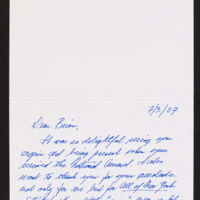 7/3/07
Dear Brian,
It was so delightful seeing you
again and being present when you
received the National Award. I also
want to thank you for your
not only for me but for all of New York